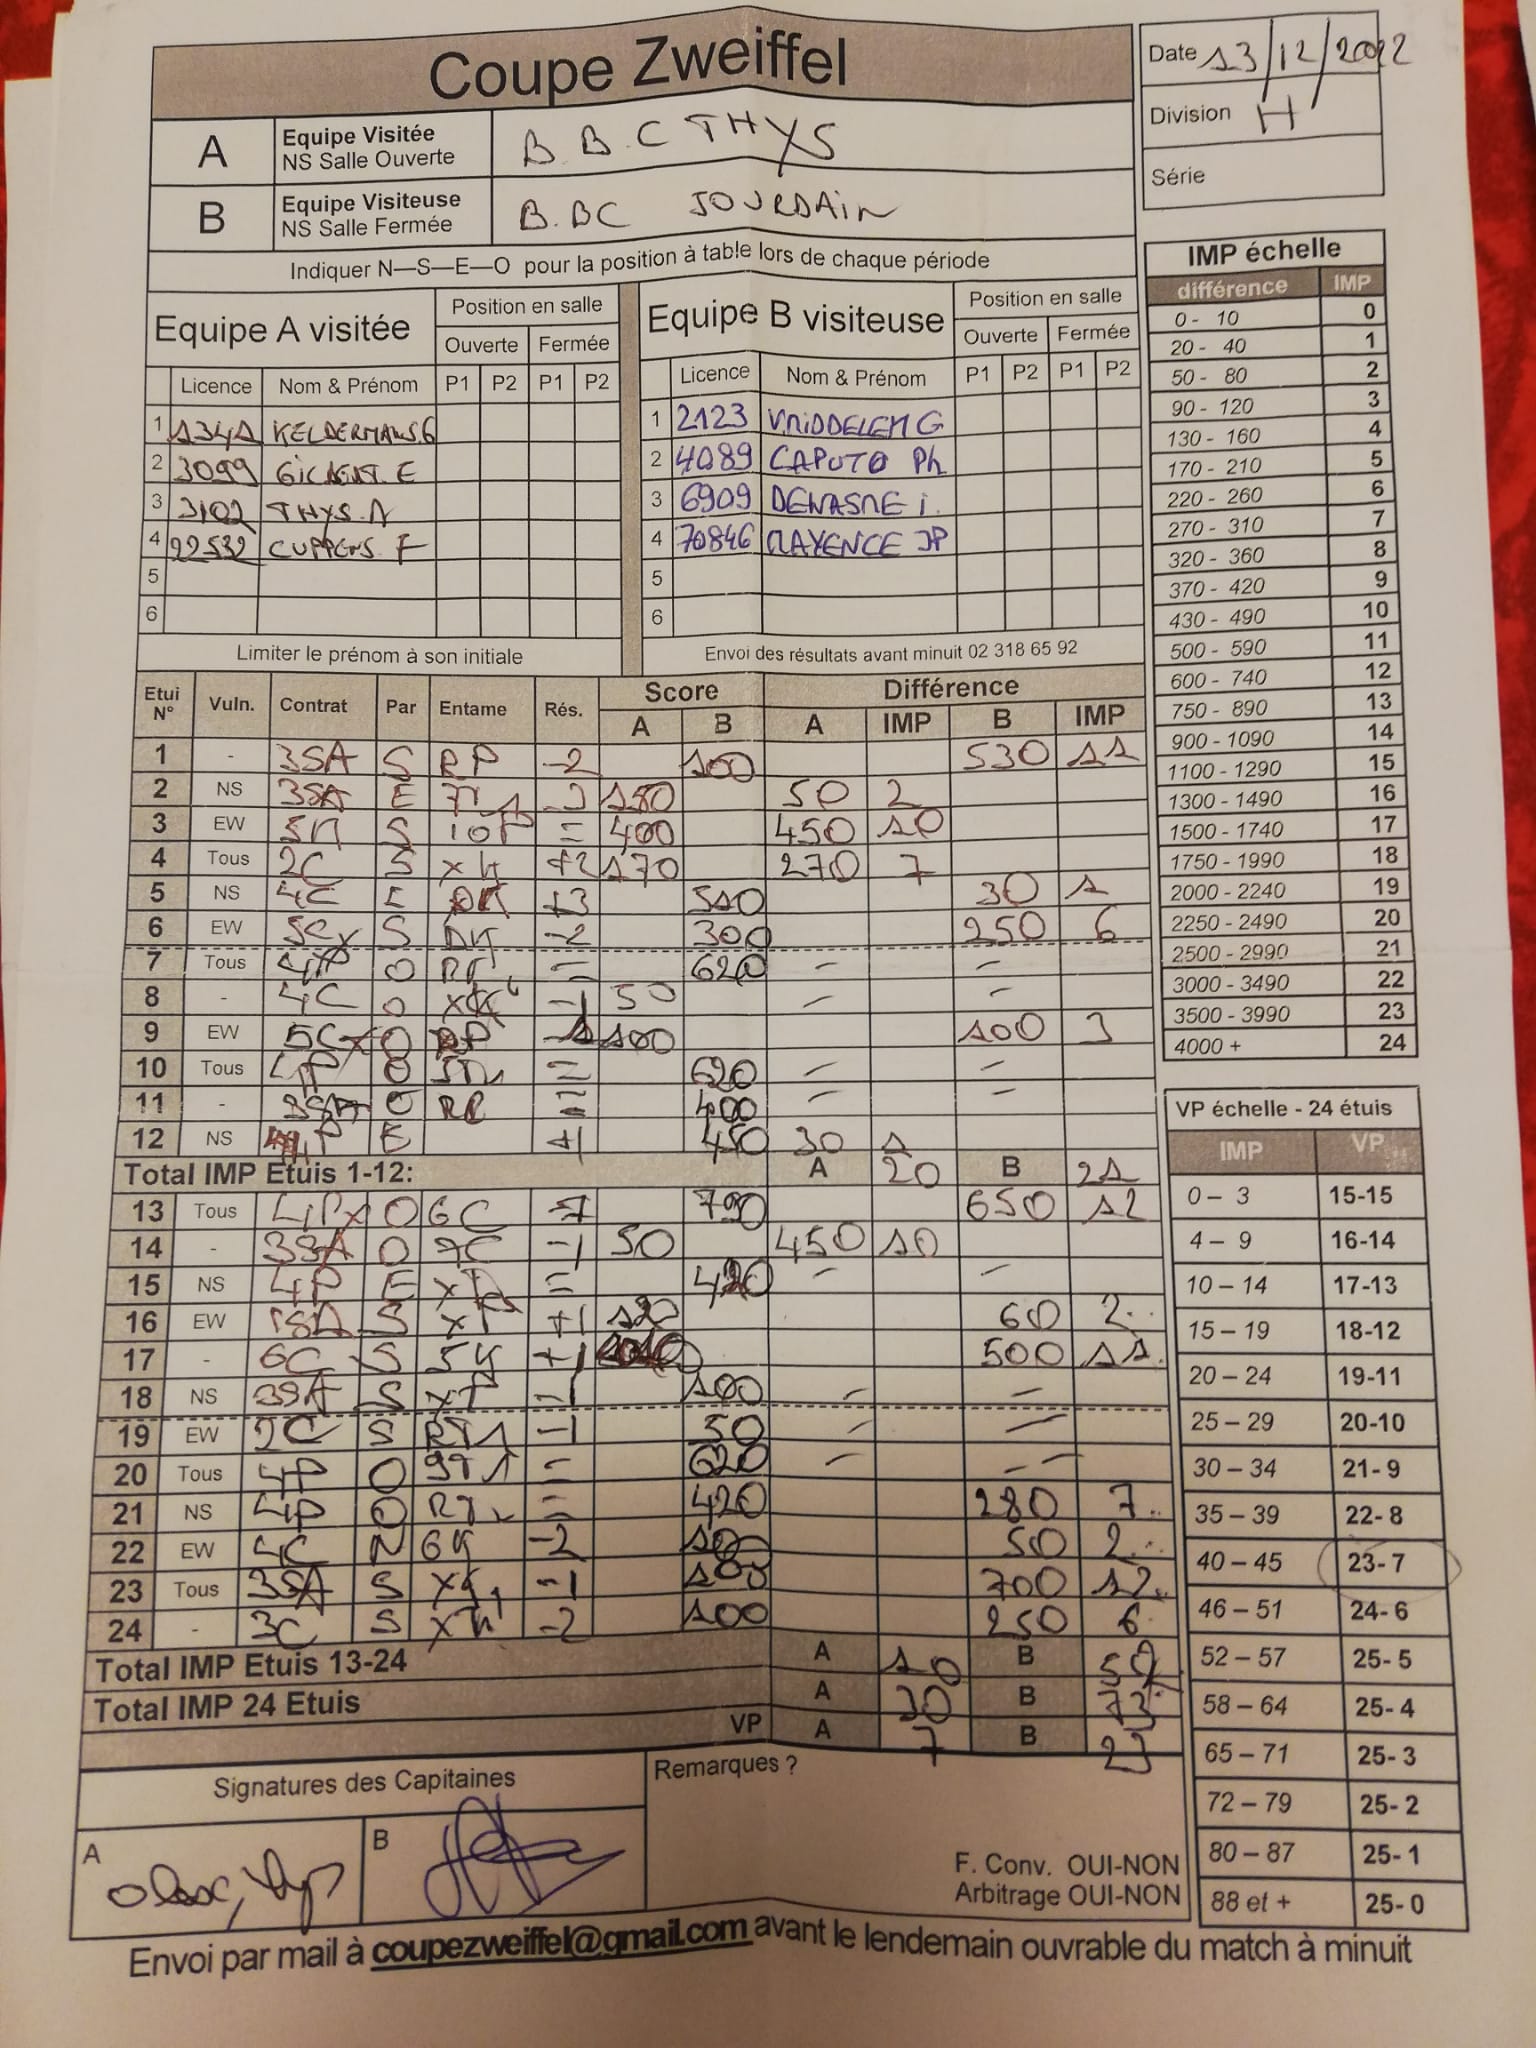 Coupe Zweiffel
Date 13/12/2022
Division H
Série
A Equipe Visitée NS Salle Ouverte B.B.C THYS
B Equipe Visiteuse NS Salle Fermée B.BC JOURDAIN
Indiquer N—S—E—O pour la position à table lors de chaque période
Equipe A visitée Position en salle Ouverte Fermée
Licence Nom & Prénom P1 P2 P1 P2
1 1341 KELDERMANS G
2 3099
3 3102 THYS.A
4 22532 CUPPENS F
5
6
Limiter le prénom à son initiale
Equipe B visiteuse Position en salle Ouverte Fermée
Licence Nom & Prénom P1 P2 P1 P2
1 2123 G
2 4089 CAPUTO Ph
3 6909 i.
4 70846 MAYENCE JP
5
6
Envoi des résultats avant minuit 02 318 65 92
Etui N° Vuln. Contrat Par Entame Rés. Score A B Différence A IMP B IMP
1 - 3SA S RP -2 100 530 11
2 NS 3SA E 50 2
3 EW S 10P = 400 450 10
4 Tous 2C S +2 170 270 7
5 NS 4C E +3 510 30 1
6 EW 5Cx S -2 300 250 6
7 Tous 4P O = 620 – –
8 - 4C O -1 50 – –
9 EW 5Cx O -1 100 100 3
10 Tous 4P O = 620 – –
11 - 3SA O = 400 – –
12 NS 4P E +1 450 30 1
Total IMP Etuis 1-12: A 20 B 21
13 Tous 4Px O 6C = 790 650 12
14 - 3SA O -1 50 450 10
15 NS 4P E = 420 – –
16 EW 1SA S +1 120 60 2
17 - 6C S 5K +1 500 11
18 NS 3SA S -1 100 – –
19 EW 2C S -1 50 – –
20 Tous 4P O = 620 – –
21 NS 4P O = 420 280 7
22 EW 4C N 6K -2 100 50 2
23 Tous 3SA S -1 100 700 12
24 - 3C S -2 100 250 6
Total IMP Etuis 13-24 A 10 B 52
Total IMP 24 Etuis A 30 B 73
VP A 7 B 23
Signatures des Capitaines
A
B
Remarques ?
F. Conv. OUI-NON
Arbitrage OUI-NON
IMP échelle
différence IMP
0 - 10 0
20 - 40 1
50 - 80 2
90 - 120 3
130 - 160 4
170 - 210 5
220 - 260 6
270 - 310 7
320 - 360 8
370 - 420 9
430 - 490 10
500 - 590 11
600 - 740 12
750 - 890 13
900 - 1090 14
1100 - 1290 15
1300 - 1490 16
1500 - 1740 17
1750 - 1990 18
2000 - 2240 19
2250 - 2490 20
2500 - 2990 21
3000 - 3490 22
3500 - 3990 23
4000 + 24
VP échelle - 24 étuis
IMP VP
0 – 3 15-15
4 – 9 16-14
10 – 14 17-13
15 – 19 18-12
20 – 24 19-11
25 – 29 20-10
30 – 34 21- 9
35 – 39 22- 8
40 – 45 23- 7
46 – 51 24- 6
52 – 57 25- 5
58 – 64 25- 4
65 – 71 25- 3
72 – 79 25- 2
80 – 87 25- 1
88 et + 25- 0
Envoi par mail à coupezweiffel@gmail.com avant le lendemain ouvrable du match à minuit